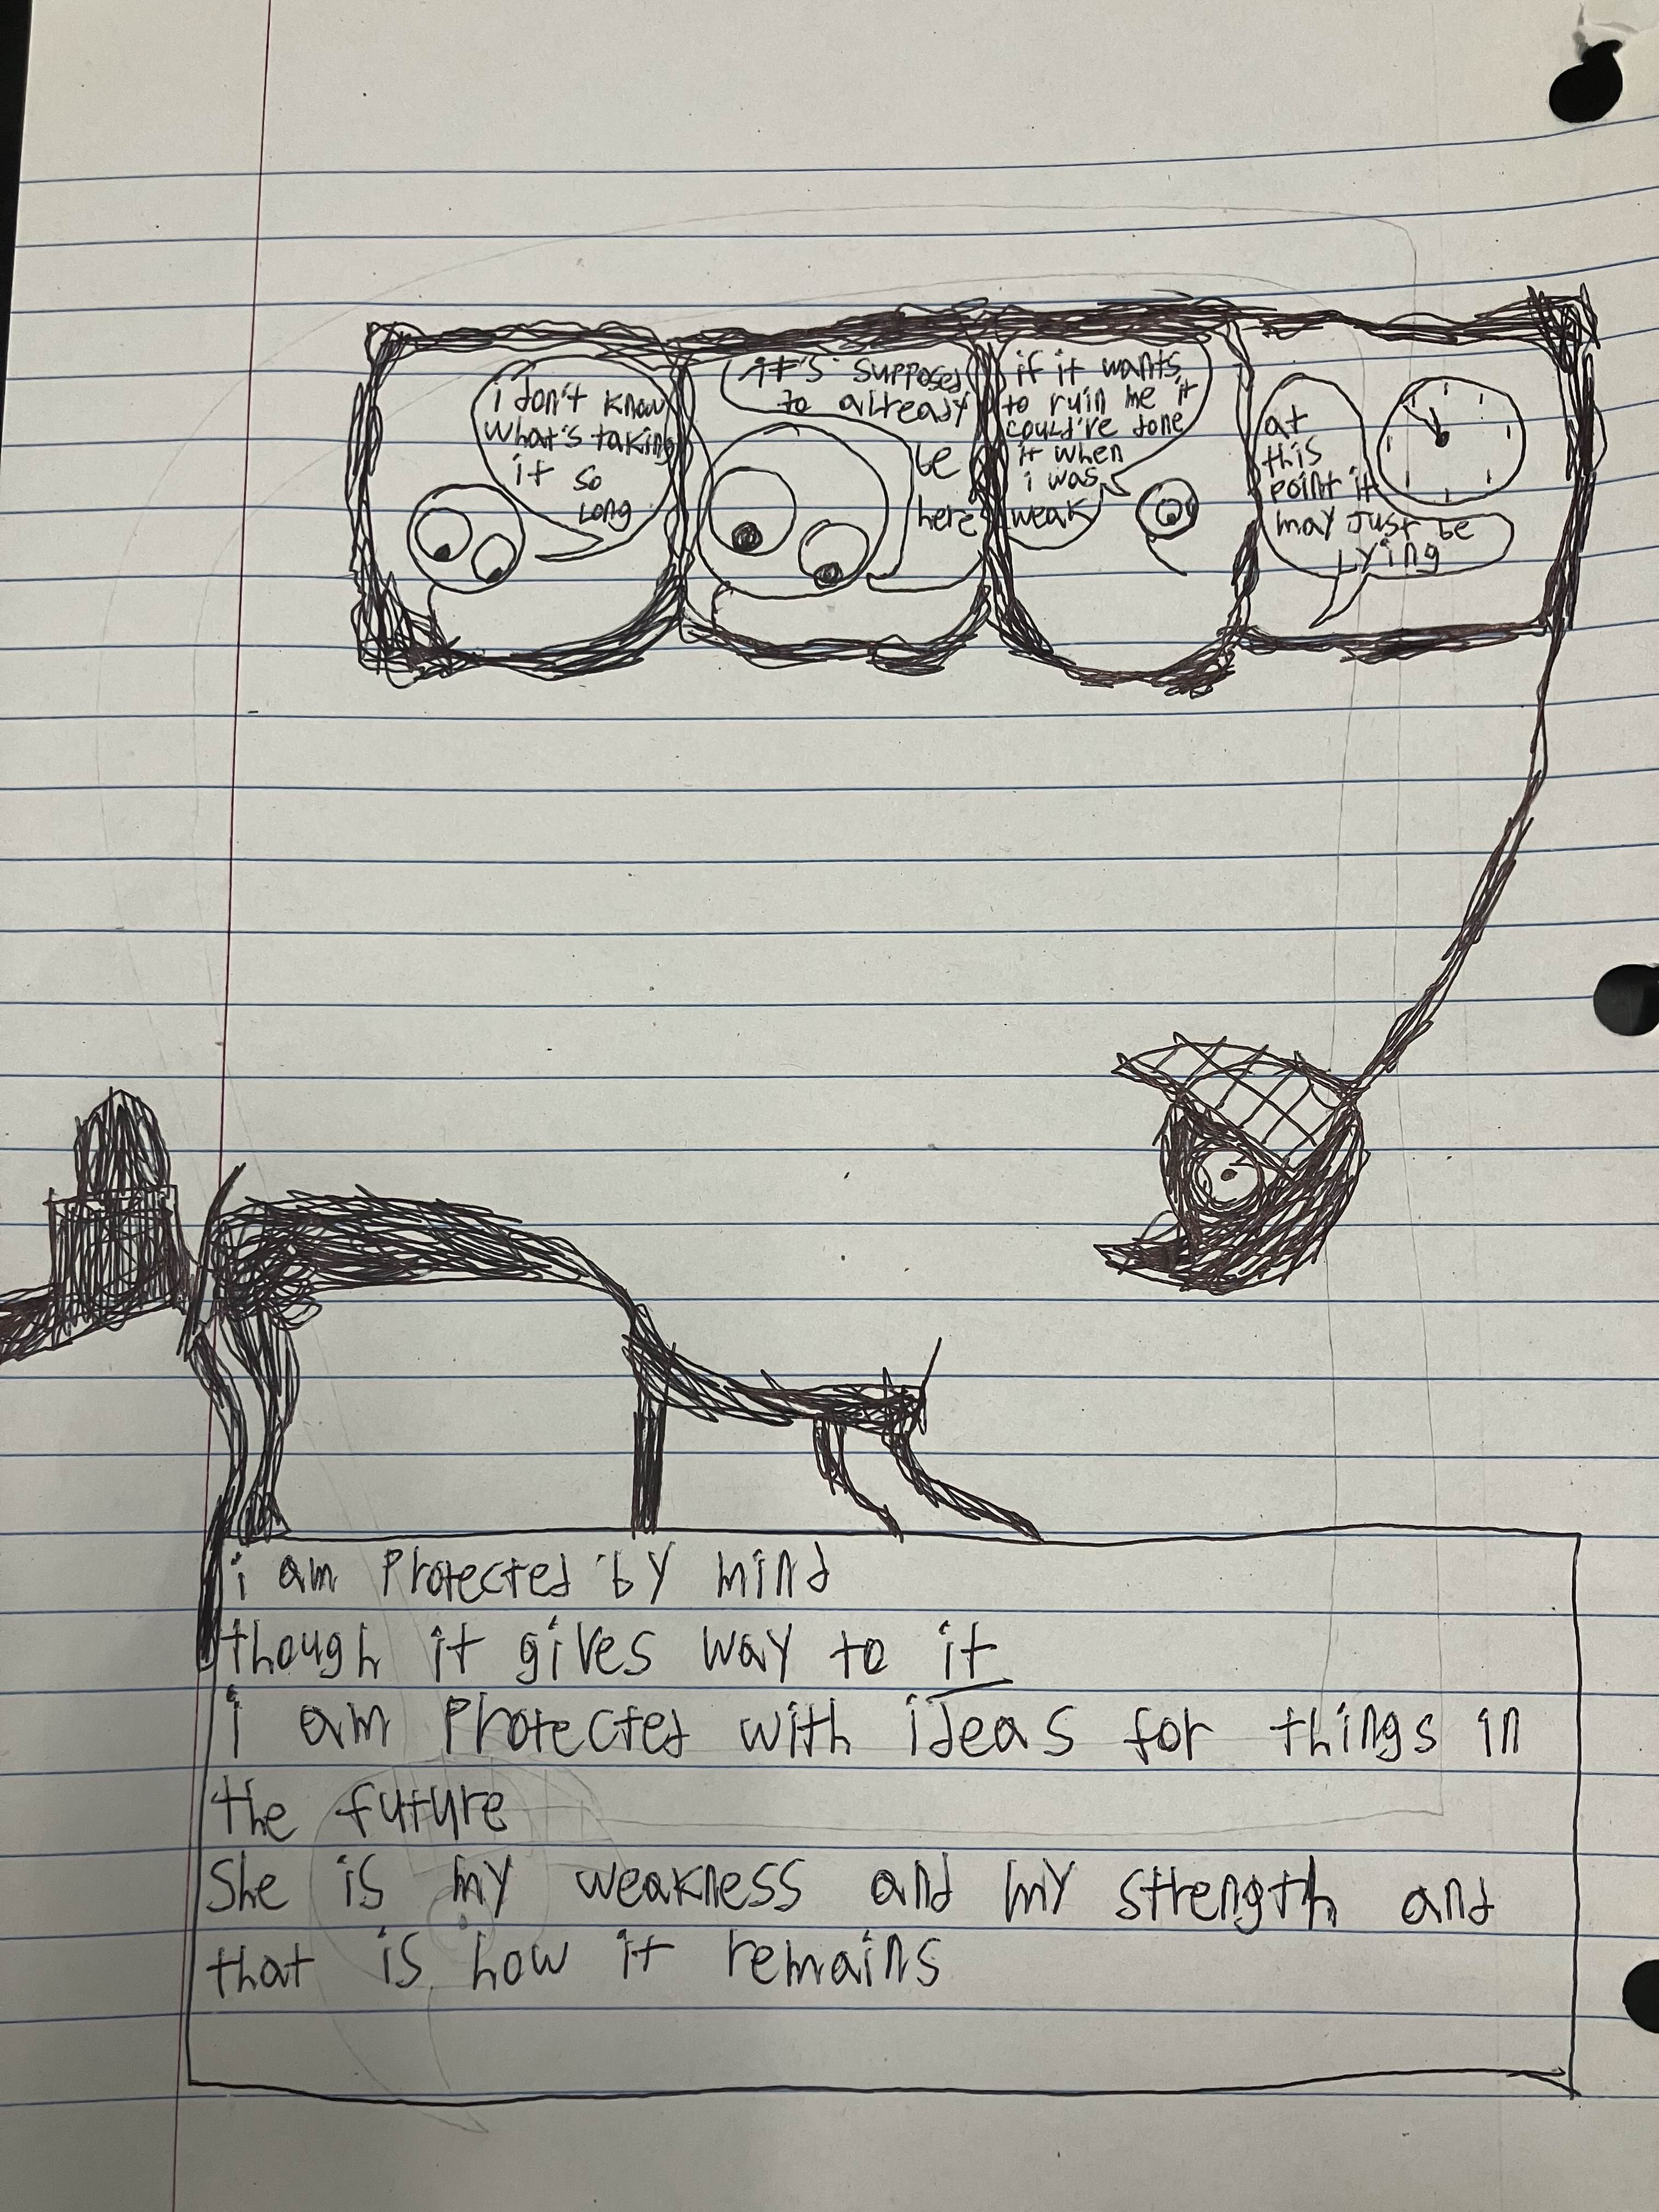 i don't know
what's taking
it so
long
it's supposed
to already
be
here
if it wants
to ruin me it
could've done
it when
i was
weak
at
this
point it
may just be
lying
i am protected by mind
though it gives way to it
i am protected with ideas for things in
the future
She is my weakness and my strength and
that is how it remains